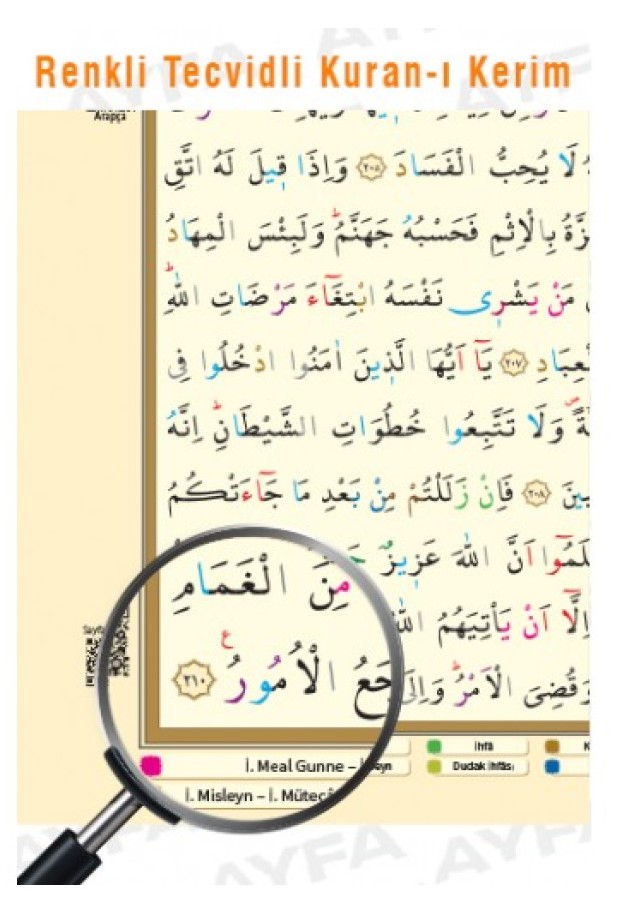 Renkli Tecvidli Kuran-ı Kerim
Arapça
لَا يُحِبُّ الْفَسَادَ ﴿٢٠٥﴾ وَاِذَا قٖيلَ لَهُ اتَّقِ
بِالْاِثْمِ فَحَسْبُهُ جَهَنَّمُ وَلَبِئْسَ الْمِهَادُ
مَنْ يَشْرٖى نَفْسَهُ ابْتِغَٓاءَ مَرْضَاتِ اللّٰهِ
﴿٢٠٧﴾ يَٓا اَيُّهَا الَّذٖينَ اٰمَنُوا ادْخُلُوا فِى
وَلَا تَتَّبِعُوا خُطُوَاتِ الشَّيْطَانِ اِنَّهُ
﴿٢٠٨﴾ فَاِنْ زَلَلْتُمْ مِنْ بَعْدِ مَا جَٓاءَتْكُمُ
اَنَّ اللّٰهَ عَزٖيزٌ
مِنَ الْغَمَامِ
اِلَّٓا اَنْ يَأْتِيَهُمُ
وَقُضِىَ الْاَمْرُ وَاِلَى
الْاُمُورُ ﴿٢١٠﴾
İhfâ
İ. Meal Gunne –
Dudak İhfâsı
İ. Misleyn – İ.
AYFA
AYFA